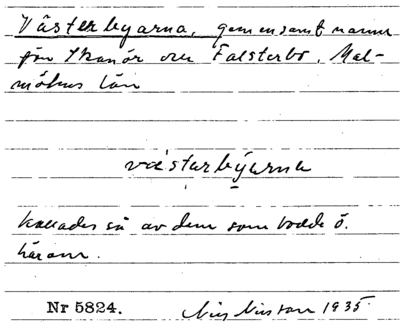 Västerbyarna, gemensamt namn
för Skanör och Falsterbo, Mal-
möhus län
västarbýarna
kallades så av dem som bodde ö.
härom.
Nr 5824. Nils Nilsson 1935